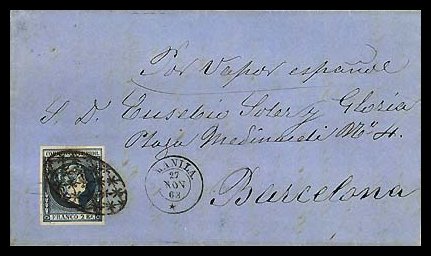 Por Vapor español
S. D. Eusebio Soler y Gloria
Plaza Medinaceli Nº 4.
Barcelona
MANILA
27
NOV
68
FRANCO